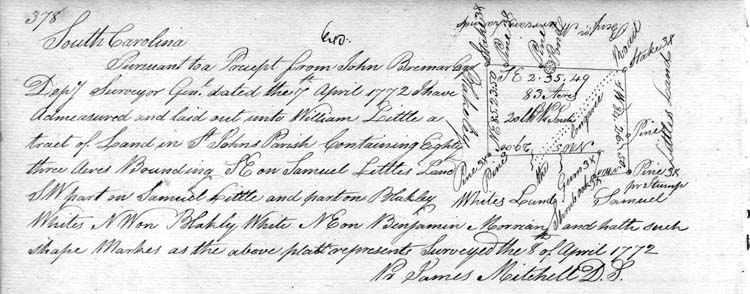 378
South Carolina
Pursuant to a Precept from John Bremar Esqr
Depy Surveyor Genl dated the 7th April 1772 I have
Admeasured and laid out unto William Little a
tract of Land in St Johns Parish Containing Eighty
three Acres Bounding SE on Samuel Littles Land
SW part on Samuel Little and part on Blakley
Whites NW on Blakly White NE on Benjamin and hath such
shape Markes as the above platt represents Surveyed the 8th of April 1772
Pr James Mitchell D. S.
Stake 3X
Pine 3X
Pine
Pond
Road
Stake 3X
Blakely
SE 2.35.49
83 Acres
20
Littles Land
Pine
Pine 3X
Pine 3
Pine 3X
Gum 3X
pr Stump
Whites Land
Samuel